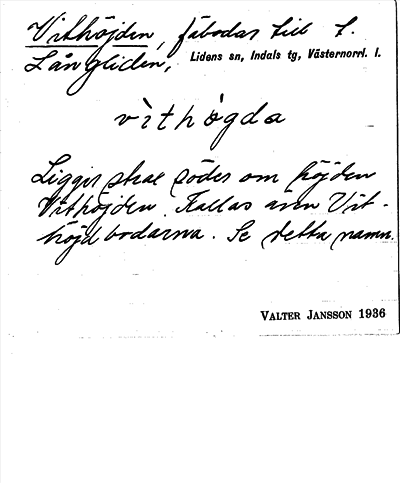 Vithöjden, fäbodar till t.
Långliden, Lidens sn, Indals tg, Västernorrl. l.
vìthögda
Ligger strax söder om höjden
Vithöjden. Kallas även Vit-
höjdbodarna. Se detta namn.
VALTER JANSSON 1936